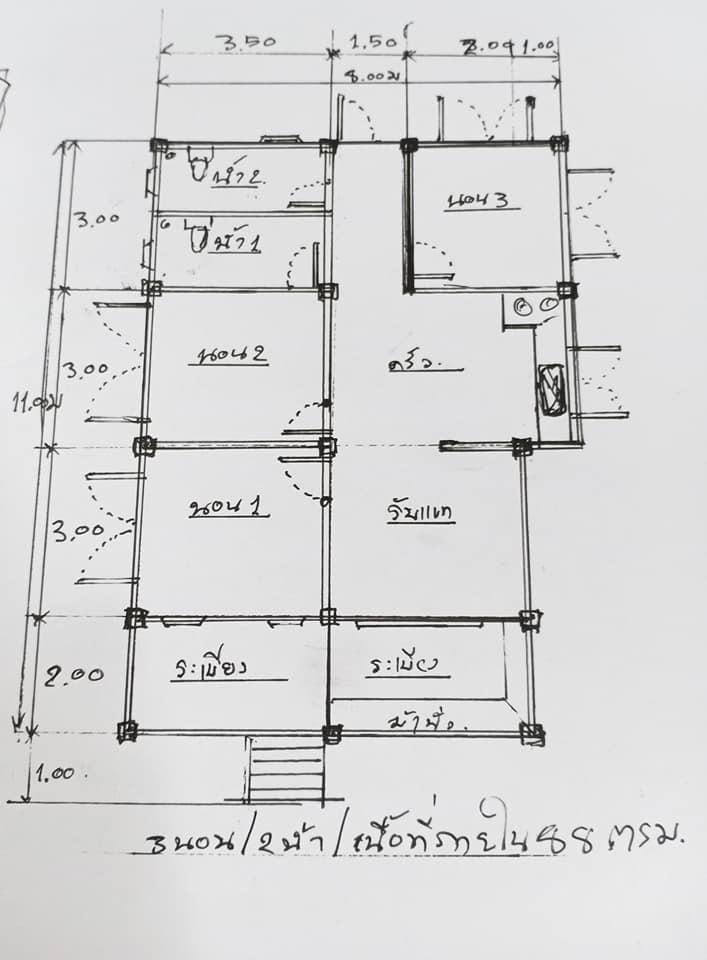 3.50 1.50 2.00 1.00
8.00ม
น้ำ2
นอน3
3.00
น้ำ1
นอน2
ครัว
3.00
11.00ม
นอน1
รับแขก
3.00
ระเบียง
ระเบียง
2.00
ม้านั่ง
1.00
3นอน/2น้ำ/เนื้อที่ภายใน88ตรม.